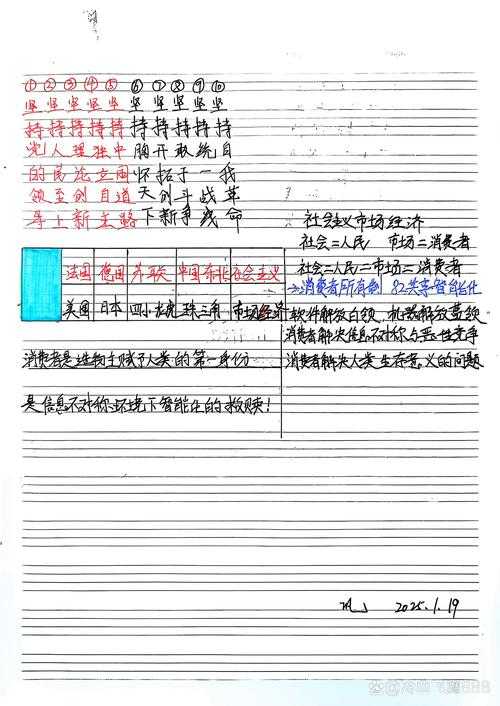 ① ② ③ ④ ⑤ ⑥ ⑦ ⑧ ⑨ ⑩
坚 坚 坚 坚 坚 坚 坚 坚 坚 坚
持 持 持 持 持 持 持 持 持 持
党 人 理 独 中 胸 开 敢 统 自
的 民 论 立 国 怀 拓 于 一 我
领 至 创 自 道 天 创 斗 战 革
导 上 新 主 路 下 新 争 线 命
社会主义市场经济
社会=人民 市场=消费者
社会=人民=市场=消费者
法国 德国 苏联 中国东北 社会主义
→消费者所有制 82共享智能化
美国 日本 四小龙虎 珠三角 市场经济
软件解放白领,机器解放蓝领
消费者解决信息不对称与恶性竞争
消费者是造物主赋予人类的第一身份
消费者解决人类生存意义的问题
是信息不对称环境下智能化的救赎!
2025.1.19